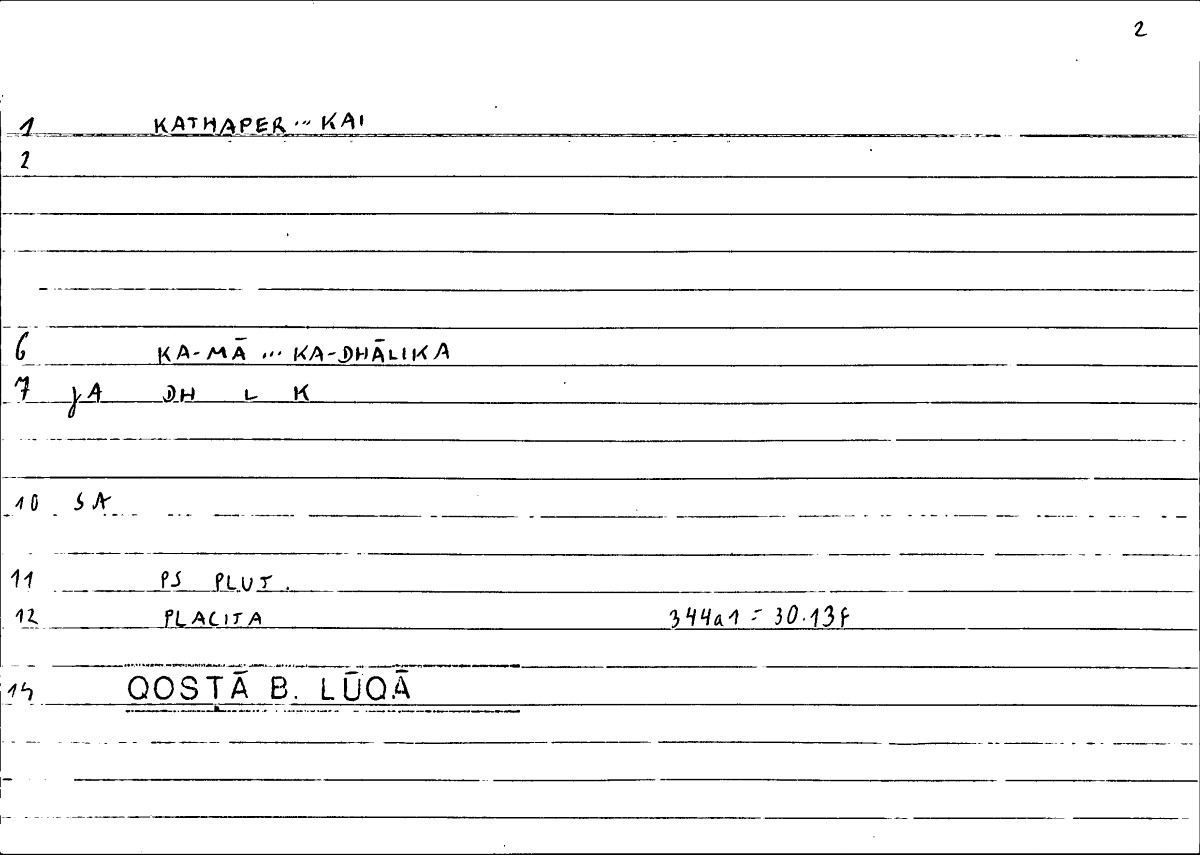 2
1 KATHAPER ... KAI
2
6 KA-MĀ ... KA-DHĀLIKA
7 JA DH L K
10 SA
11 PS PLUT.
12 PLACITA 344a1 = 30.13f
14 QOSṬĀ B. LŪQĀ